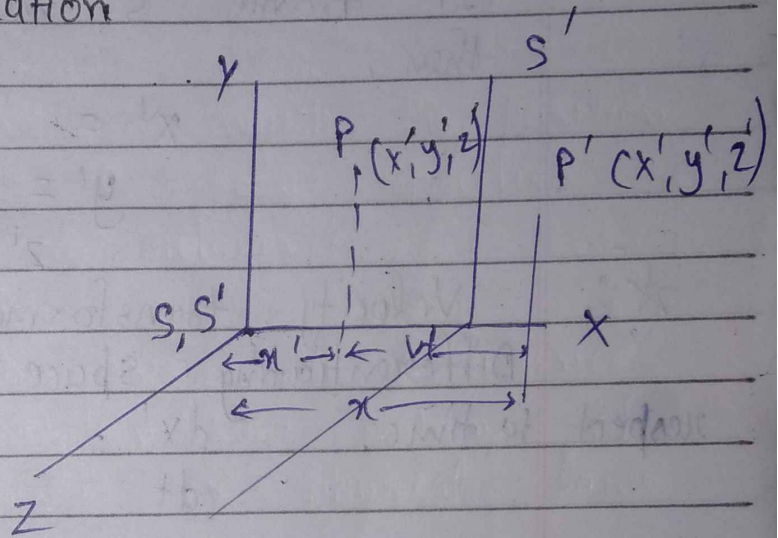 ation
S'
Y
P (x', y', z')
P' (x', y', z')
x' =
y' =
z'
S, S'
X
x'
vt
x
Z